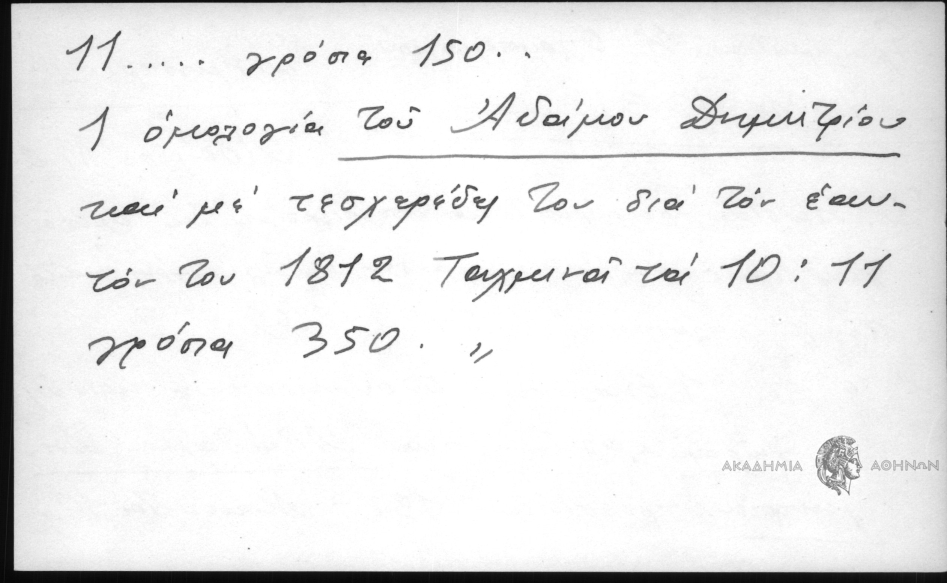 11..... γρόσια 150..
1 ὁμολογία τοῦ Ἀδαίμου Δημητρίου
καί μέ τεσχερέδες του διά τόν ἑαυ-
τόν του 1812 Ταχμιναῖ τά 10: 11
γρόσια 350. „
ΑΚΑΔΗΜΙΑ ΑΘΗΝΩΝ